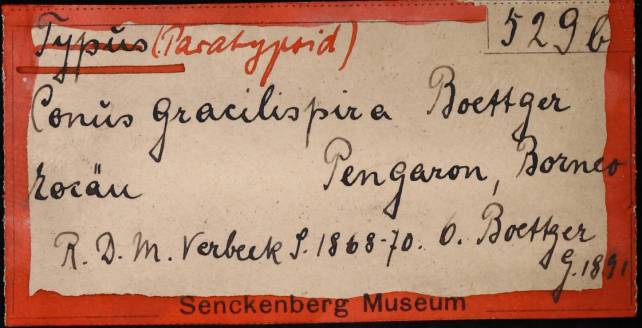 Typus (Paratypoid) 529b
Conus gracilispira Boettger
Eocän Pengaron, Borneo
R. D. M. Verbeek S. 1868-70. O. Boettger
G. 1891
Senckenberg Museum